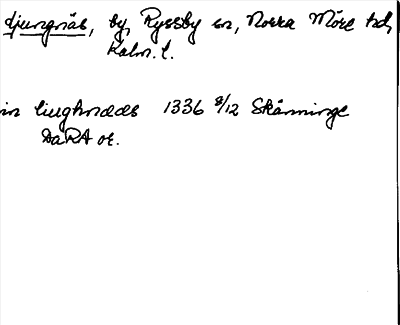 Ljungnäs, by, Ryssby sn, Norra Möre hd,
Kalm. l.
in liughnædes 1336 8/12 Skänninge
DaRA or.